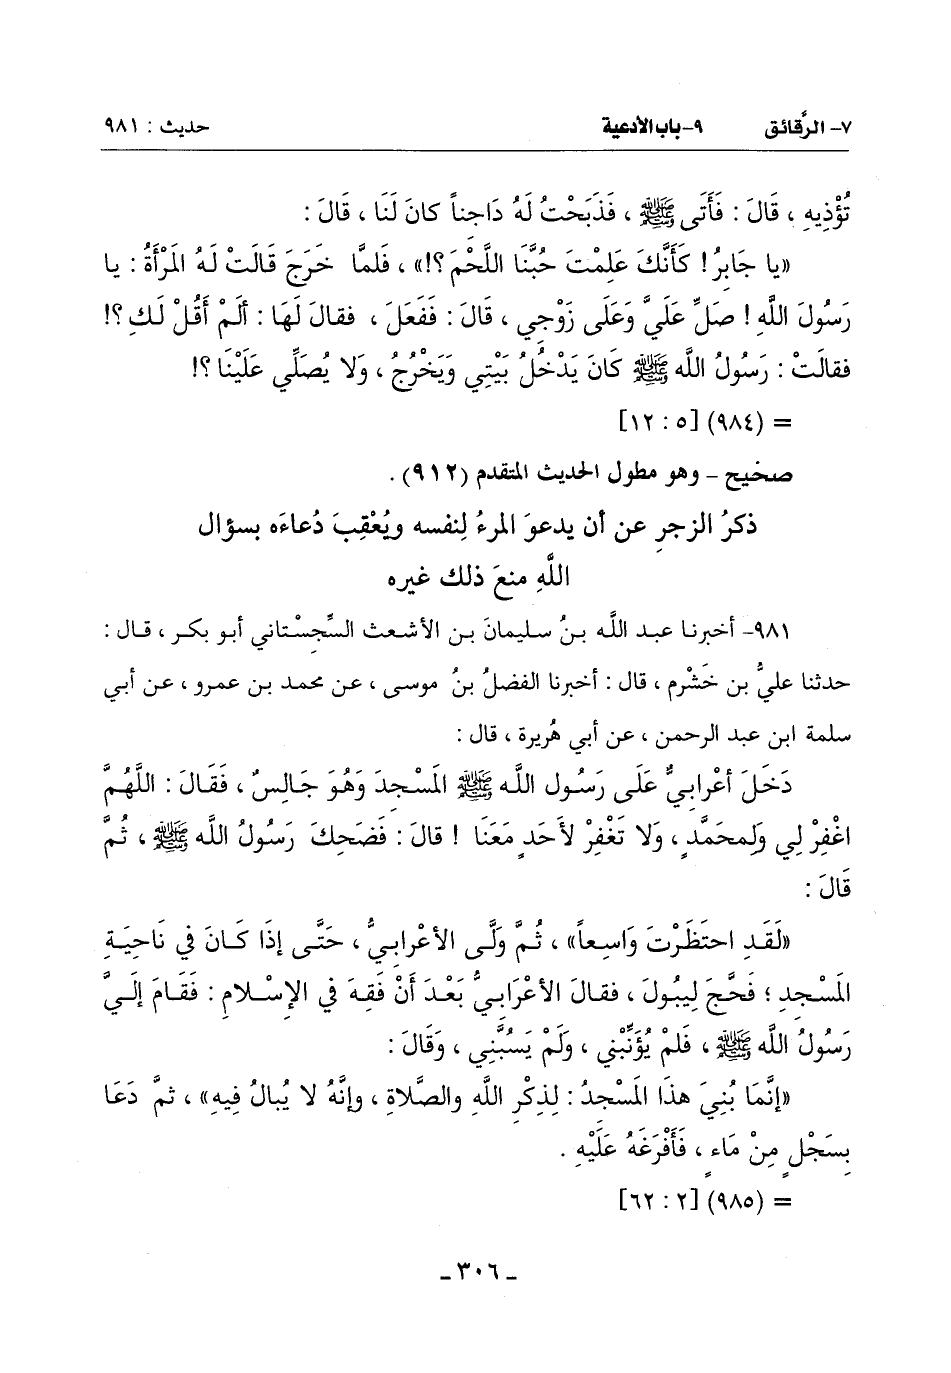 ٧- الرَّقائق ٩- باب الأدعية حديث : ٩٨١
تُؤْذِيهِ ، قَالَ : فَأَتَى ﷺ ، فَذَبَحْتُ لَهُ دَاجِناً كانَ لَنَا ، قَالَ :
«يا جَابِرُ ! كَأَنَّكَ عَلِمْتَ حُبَّنَا اللَّحْمَ ؟!» ، فَلمَّا خَرَجَ قالَتْ لَهُ المَرْأَةُ : يا
رَسُولَ اللَّهِ ! صَلِّ عَلَيَّ وَعَلَى زَوْجِي ، قَالَ : فَفَعَلَ ، فقالَ لَهَا : ألَمْ أَقُلْ لَكِ ؟!
فقالَتْ : رَسُولُ اللَّه ﷺ كَانَ يَدْخُلُ بَيْتِي وَيَخْرُجُ ، وَلا يُصَلِّي عَلَيْنَا ؟!
= (٩٨٤) [٥ : ١٢]
صحيح - وهو مطول الحديث المتقدم (٩١٢) .
ذكرُ الزجرِ عن أن يدعوَ المرءُ لِنفسه ويُعْقِبَ دُعاءَه بسؤال
اللَّهِ منعَ ذلك غيره
٩٨١- أخبرنا عبد اللَّه بنُ سليمانَ بن الأشعث السِّجِسْتاني أبو بكر ، قال :
حدثنا عليُّ بن خَشْرم ، قال : أخبرنا الفضلُ بنُ موسى ، عن محمد بن عمرو ، عن أبي
سلمة ابن عبد الرحمن ، عن أبي هُريرة ، قال :
دَخَلَ أعْرابيٌّ عَلَى رَسُول اللَّه ﷺ المَسْجدَ وَهُوَ جَالِسٌ ، فَقَالَ : اللَّهُمَّ
اغْفِرْ لِي وَلِمحَمَّدٍ ، وَلا تَغْفِرْ لأَحَدٍ مَعَنَا ! قالَ : فَضَحِكَ رَسُولُ اللَّه ﷺ ، ثُمَّ
قَالَ :
«لَقَدِ احتَظَرْتَ وَاسِعاً» ، ثُمَّ وَلَّى الأعْرابيُّ ، حَتَّى إذَا كَانَ فِي نَاحِيَةِ
المَسْجدِ ؛ فَحَّجَ لِيبُولَ ، فقالَ الأعْرَابيُّ بَعْدَ أنْ فَقِهَ فِي الإسْلامِ : فَقَامَ إلَيَّ
رَسُولُ اللَّه ﷺ ، فَلَمْ يُؤَنِّبْنِي ، ولَمْ يَسُبَّنِي ، وَقَالَ :
«إنَّمَا بُنِيَ هذَا المَسْجدُ : لِذِكْرِ اللَّهِ والصَّلاةِ ، وإنَّهُ لا يُبالُ فِيهِ» ، ثمَّ دَعَا
بِسَجْلٍ مِنْ مَاءٍ ، فَأَفْرَغَهُ عَلَيْهِ .
= (٩٨٥) [٢ : ٦٢]
- ٣٠٦ -